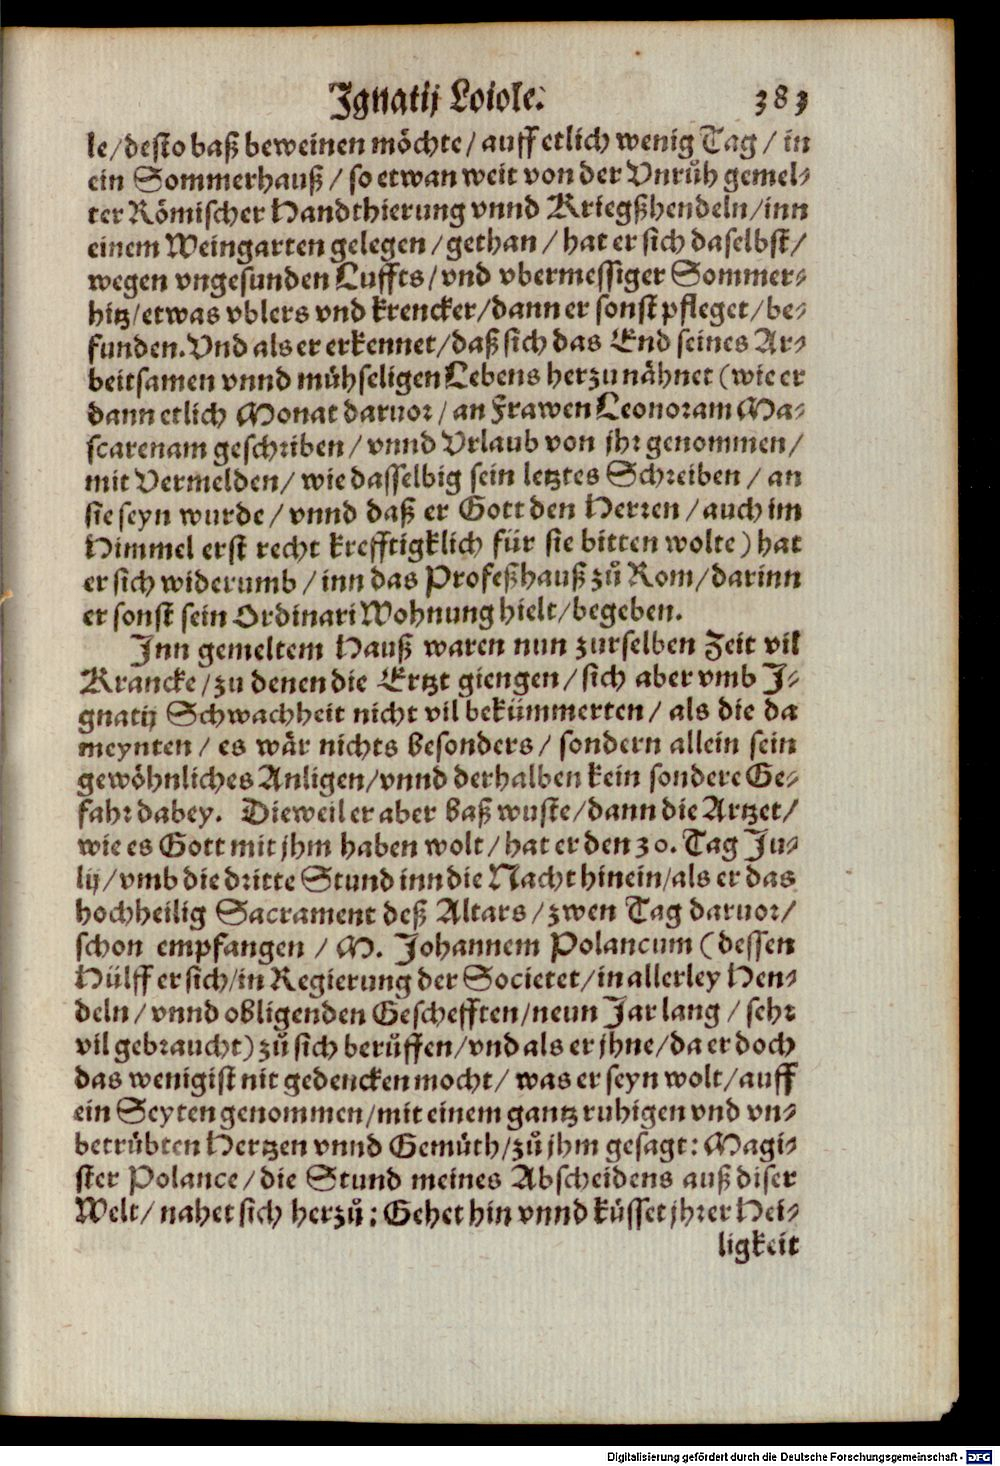 Ignatij Loiole. 383
le/desto baß beweinen möchte/auff etlich wenig Tag/in
ein Sommerhauß/so etwan weit von der Vnrůh gemel-
ter Römischer Handthierung vnnd Kriegßhendeln/inn
einem Weingarten gelegen/gethan/hat er sich daselbst/
wegen vngesunden Luffts/vnd vbermessiger Sommer-
hitz/etwas vblers vnd krencker/dann er sonst pfleget/be-
funden. Vnd als er erkennet/daß sich das End seines Ar-
beitsamen vnnd mühseligen Lebens herzu nähnet (wie er
dann etlich Monat daruor/an Frawen Leonoram Ma-
scarenam geschriben/vnnd Vrlaub von jhr genommen/
mit Vermelden/wie dasselbig sein letztes Schreiben/an
sie seyn wurde/vnnd daß er Gott den Herren/auch im
Himmel erst recht krefftigklich für sie bitten wolte) hat
er sich widerumb/inn das Profeßhauß zů Rom/darinn
er sonst sein Ordinari Wohnung hielt/begeben.
Inn gemeltem Hauß waren nun zurselben Zeit vil
Krancke/zu denen die Ertzt giengen/sich aber vmb I-
gnatij Schwachheit nicht vil bekümmerten/als die da
meynten/es wär nichts besonders/sondern allein sein
gewöhnliches Anligen/vnnd derhalben kein sondere Ge-
fahr dabey. Dieweil er aber baß wuste/dann die Artzet/
wie es Gott mit jhm haben wolt/hat er den 30. Tag Ju-
lij/vmb die dritte Stund inn die Nacht hinein/als er das
hochheilig Sacrament deß Altars/zwen Tag daruor/
schon empfangen/M. Johannem Polancum (dessen
Hülff er sich/in Regierung der Societet/in allerley Hen-
deln/vnnd obligenden Geschefften/neun Jar lang/sehr
vil gebraucht) zů sich berůffen/vnd als er jhne/da er doch
das wenigist nit gedencken mocht/was er seyn wolt/auff
ein Seyten genommen/mit einem gantz ruhigen vnd vn-
betrübten Hertzen vnnd Gemüth/zů jhm gesagt: Magi-
ster Polance/die Stund meines Abscheidens auß diser
Welt/nahet sich herzů: Gehet hin vnnd küsset jhrer Hei-
ligkeit
Digitalisierung gefördert durch die Deutsche Forschungsgemeinschaft - DFG